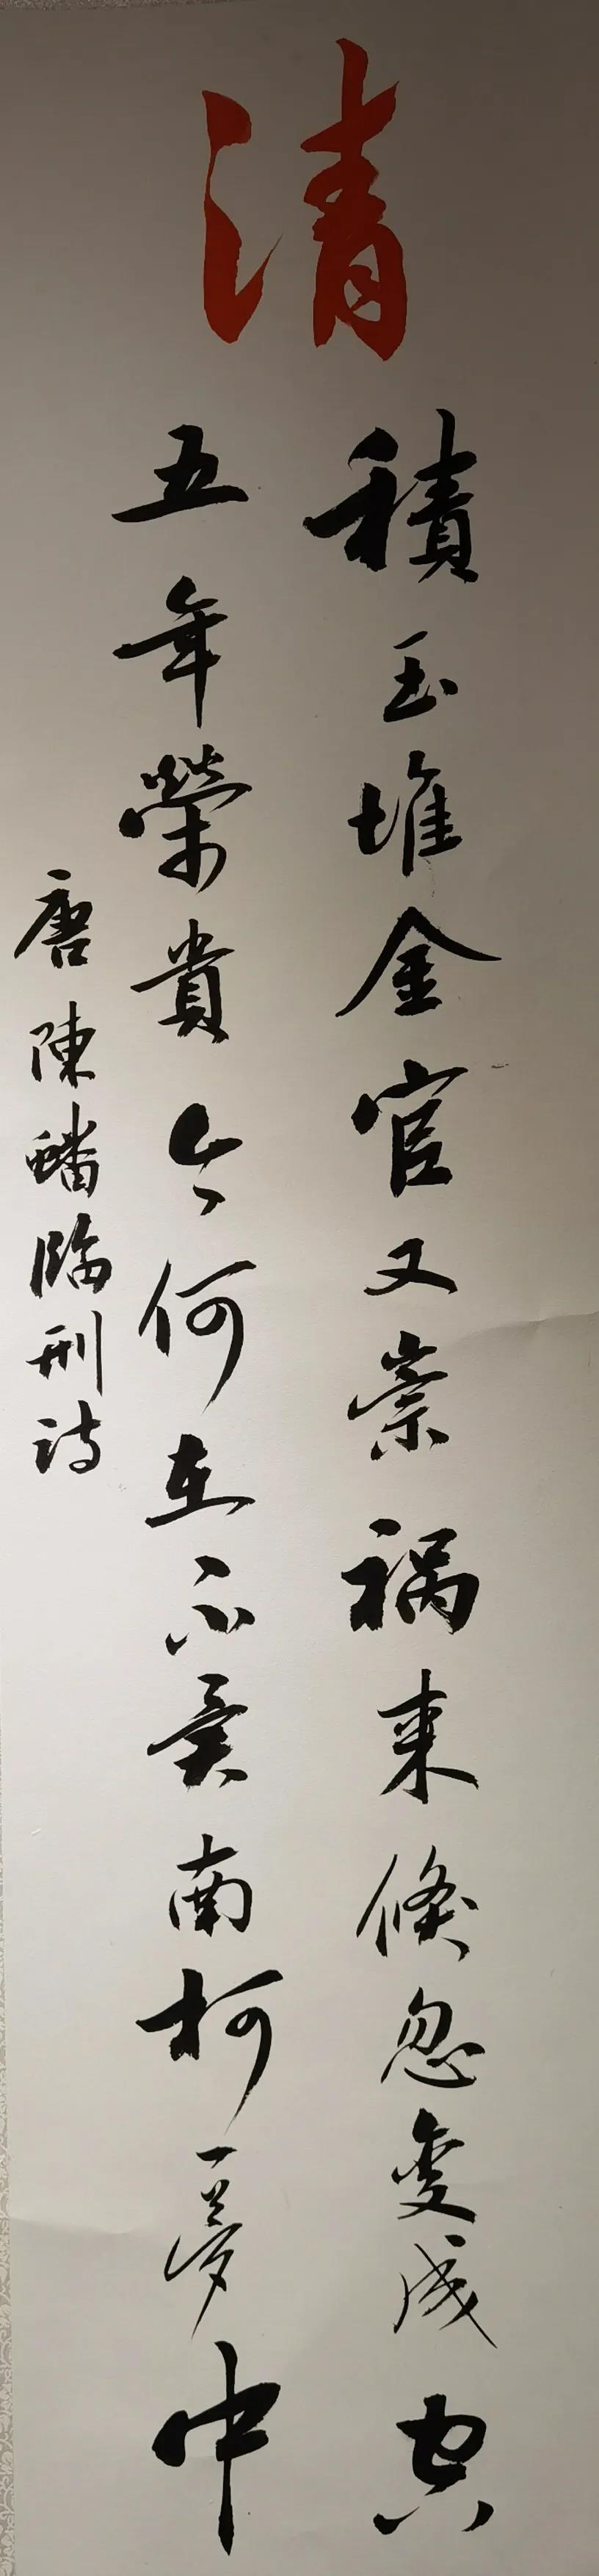 清
積玉堆金官又崇祸来倏忽变成空
五年榮貴今何在不異南柯一夢中
唐陳蟠临刑诗